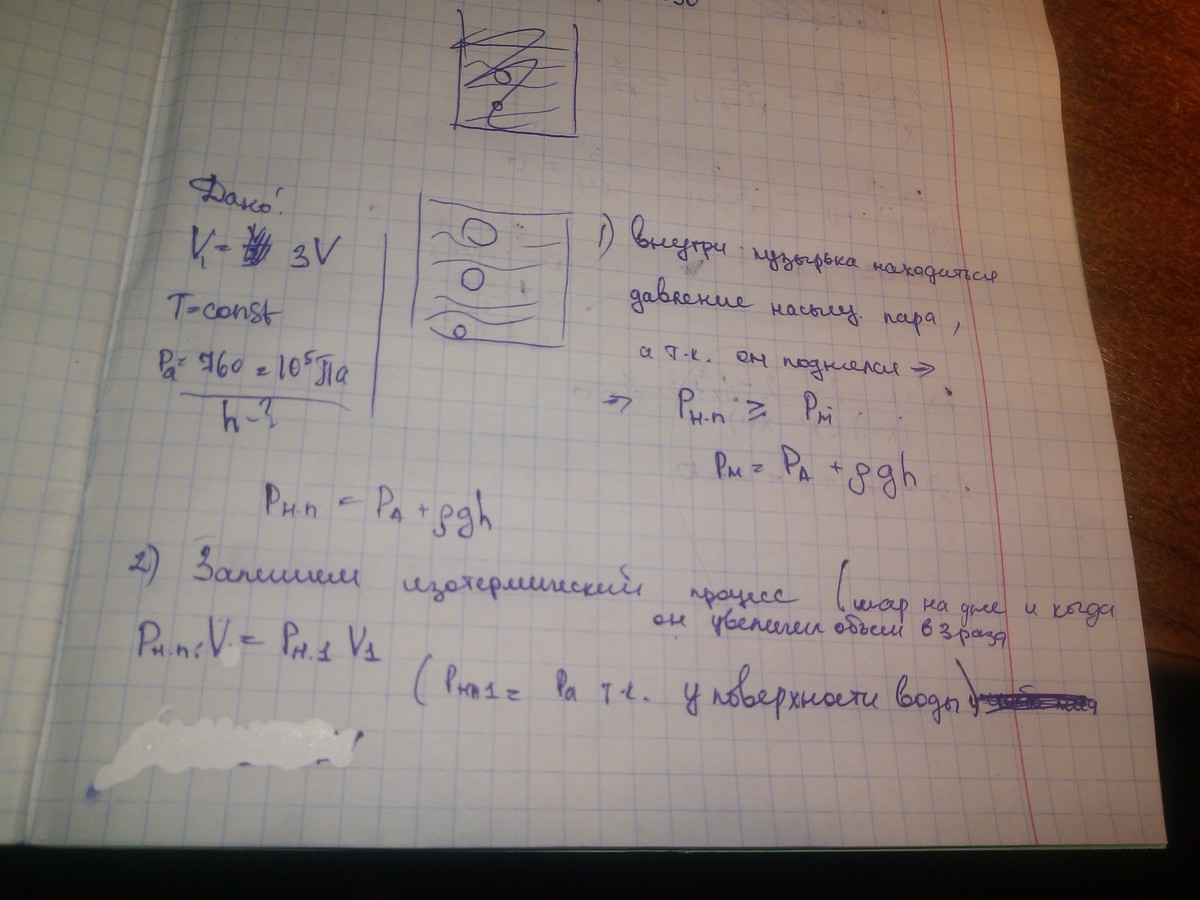 Дано:
V₁ = 3V
T = const
Pa = 760 = 10⁵ Па
h - ?
1) Внутри пузырька находиться
давление насыщ. пара,
а т.к. он поднялся ⇒
⇒ Pн.п ≥ Pм
Pм = PА + ρgh
Pн.п = PА + ρgh
2) Запишем изотермический процесс (шар на дне и когда
он увеличил объем в 3 раза)
Pн.п. V = Pн.1 V1
(Pнп1 = Pa т.к. у поверхности воды)